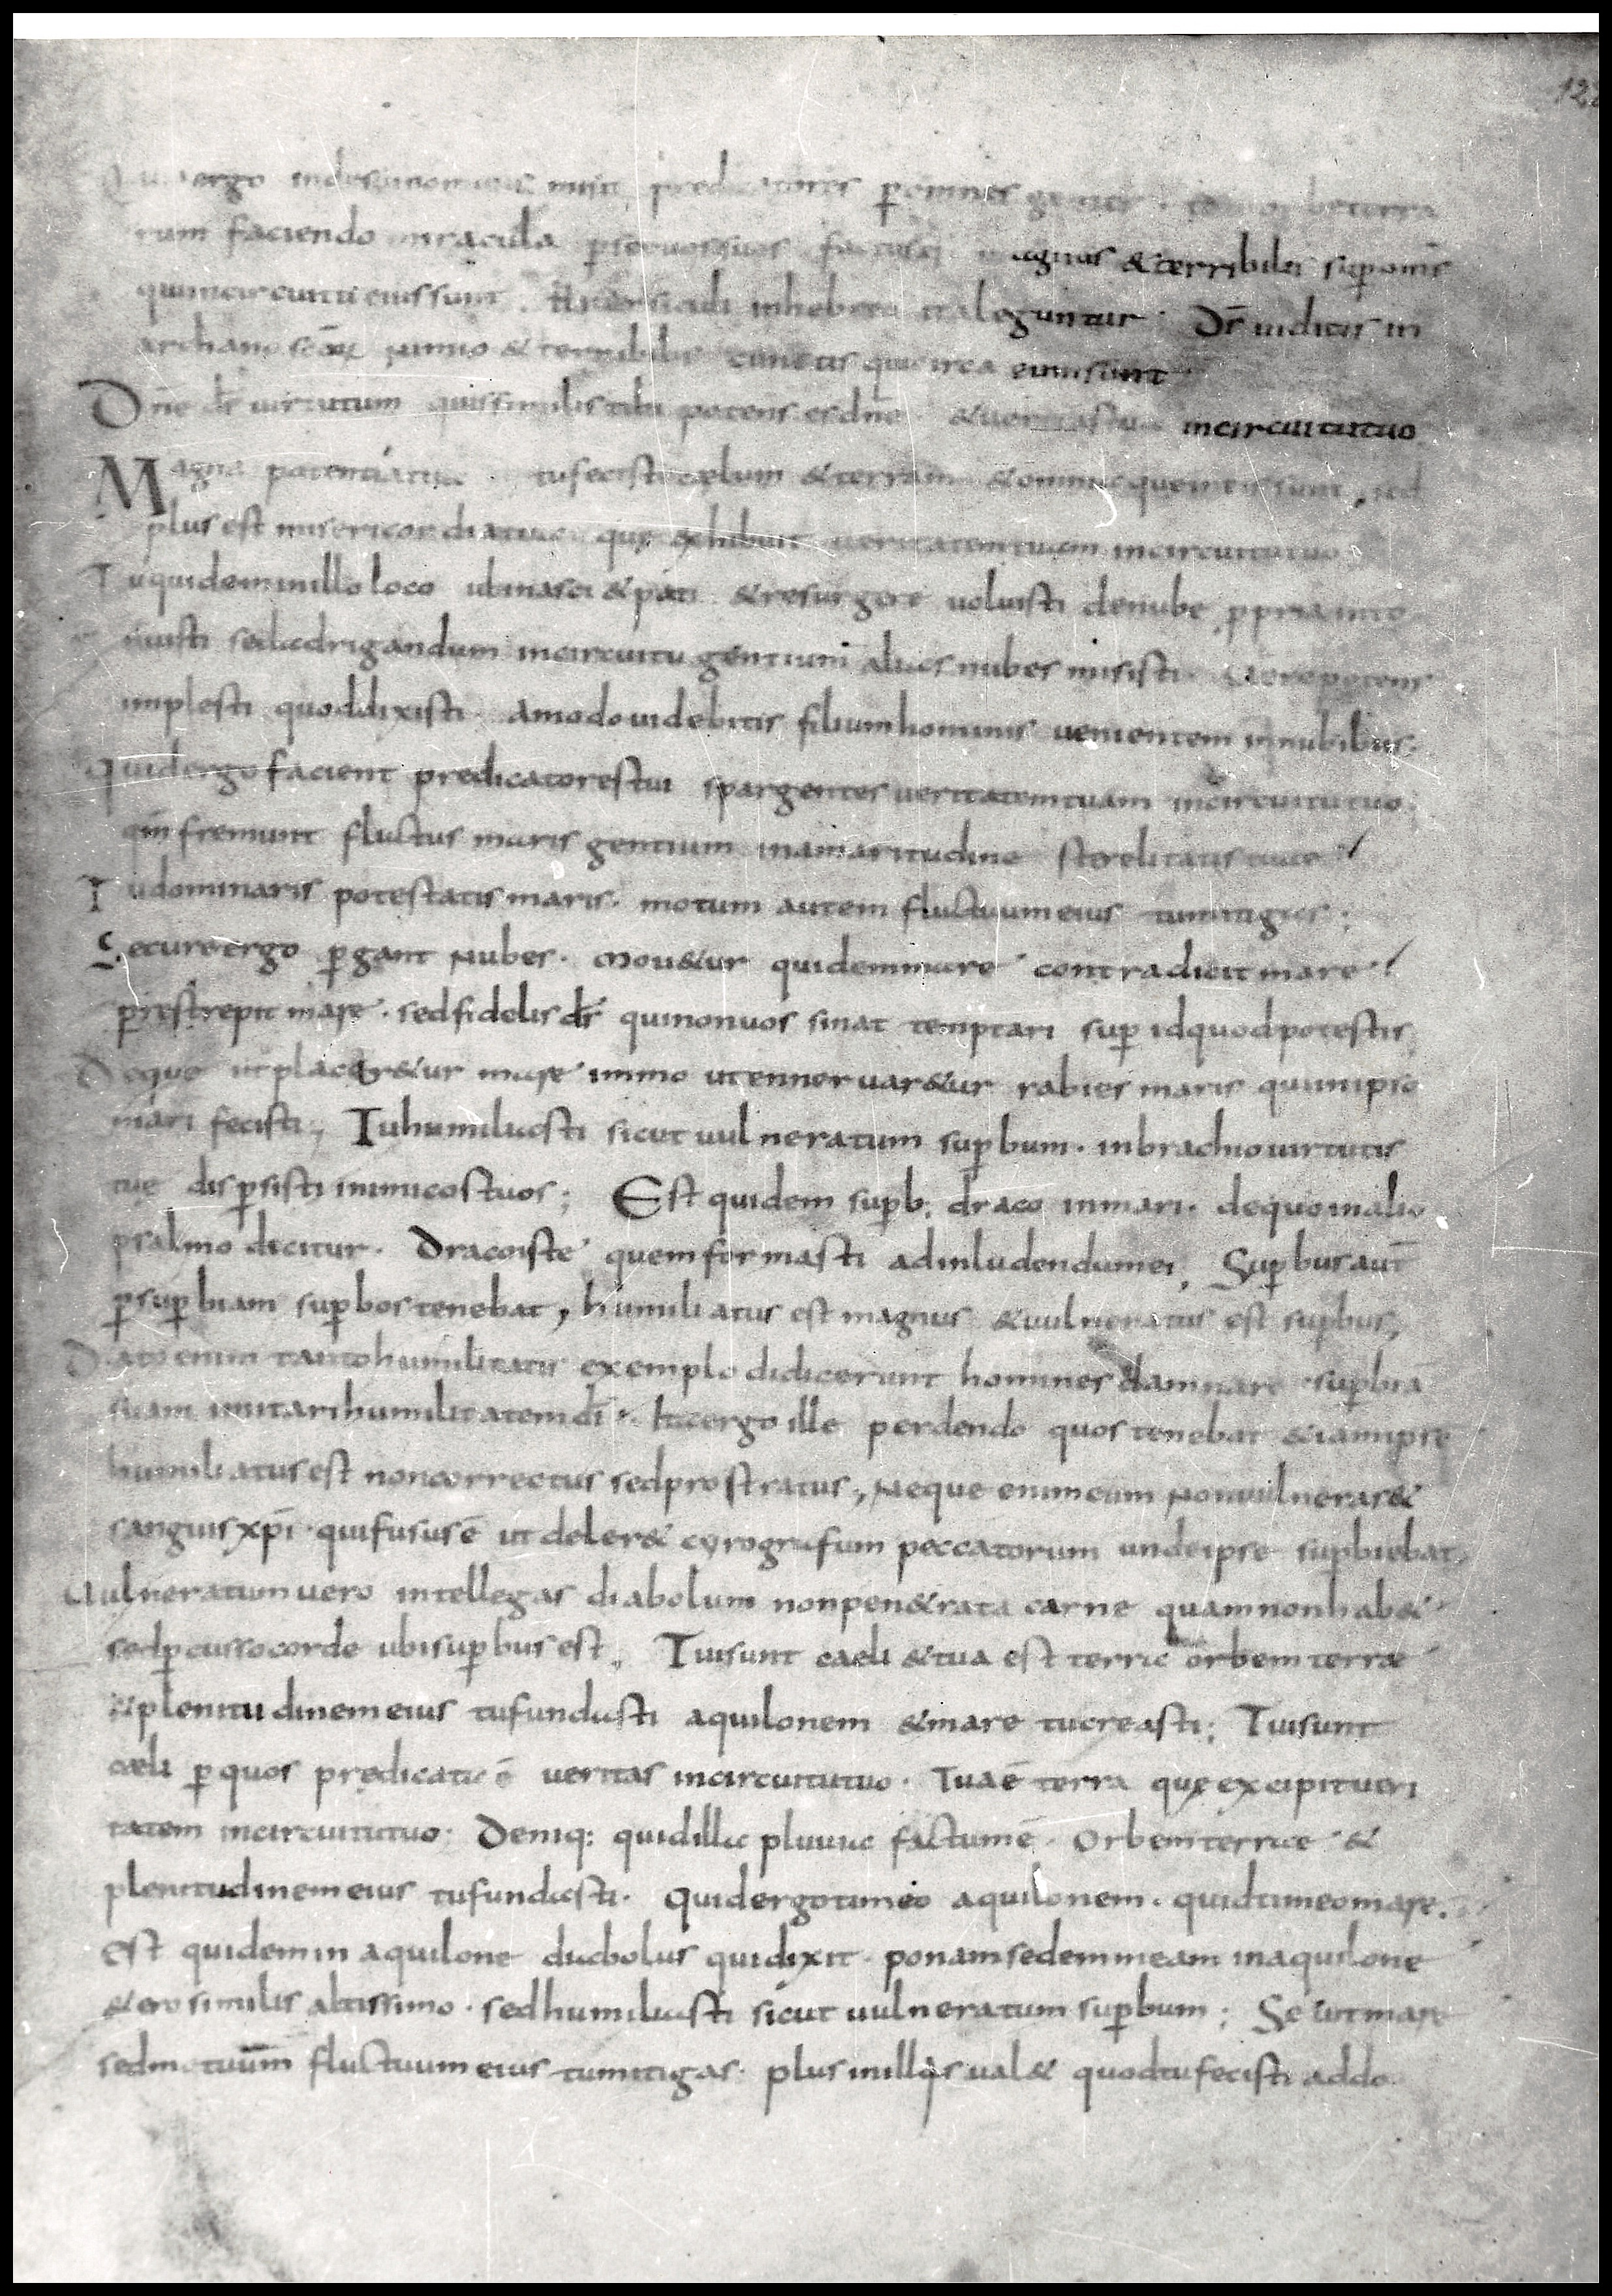 ergo predicatores ꝑ omnes gentes
rum faciendo miracula magnus & terribilis suꝑ om̄s
qui in circuitu eius sunt. inhebreo ita leguntur. D̄s inclitus in
archano nimio & terribilis cunctis qui circa eum sunt
Dn̄e d̄s uirtutum quis similis tibi potens es dn̄e. & ueritas tua in circuitu tuo
Magna potentia tua tu fecisti cælum & terram & omnia que in eis sunt, sed
plus est misericordia tua que exhibuit ueritatem tuam in circuitu tuo
Tu quidem in illo loco ubi nasci & pati & resurgere uoluisti de nube ꝓpria into
nuisti sed ad rigandum in circuitu gentium alias nubes misisti.
implesti quod dixisti. Amodo uidebitis filium hominis uenientem in nubibus.
Quid ergo facient predicatores tui spargentes ueritatem tuam in circuitu tuo.
fremunt fluctus maris gentium in amaritudine sterelitatis tuae
Tu dominaris potestatis maris. motum autem fluctuum eius tu mitigas;
Secure ergo ꝑgant nubes. Mou&ur quidem mare contradicit mare
ꝑstrepit mare. sed fidelis d̄s qui non uos sinat temptari suꝑ id quod potestis
Deque ut placar&ur mare immo ut enneruar&ur rabies maris quid in ipso
mari fecisti; Tu humiliasti sicut uulneratum suꝑbum. in brachio uirtutis
tue disꝑsisti inimicos tuos; Est quidem suꝑb; draco in mari. de quo in alio
psalmo dicitur. Draco iste quem formasti ad inludendum ei, Suꝑbus aut̄
ꝑ suꝑbiam suꝑbos tenebat, humiliatus est magnus & uulneratus est suꝑbus,
Dato enim tanto humilitatis exemplo didicerunt homines damnare suꝑbia
suam imitari humilitatem dī. Ita ergo ille perdendo quos tenebat & iam ipse
humiliatus est non correctus sed prostratus, Neque enim eum non uulneras&
sanguis xp̄i. qui fusus ē ut deler& cyrografum peccatorum unde ipse suꝑbiebat.
Uulneratum uero intellegas diabolum non pen&rata carne quam non hab&
sed ꝑcusso corde ubi suꝑbus est. Tui sunt caeli & tua est terra orbem terrae
& plenitudinem eius tu fundasti aquilonem & mare tu creasti; Tui sunt
cæli ꝑ quos predicata ē ueritas in circuitu tuo. Tua ē terra que excipit ueri
tatem in circuitu tuo; Deniq; quid illa pluuia factum ē. Orbem terrae &
plenitudinem eius tu fundasti. Quid ergo timeo aquilonem. quid timeo mare.
Est quidem in aquilone diabolus qui dixit. ponam sedem meam in aquilone
& ero similis altissimo. sed humiliasti sicut uulneratum suꝑbum; mare
sed motuum̄ fluctuum eius tu mitigas. plus in illis ual& quod tu fecisti ad do